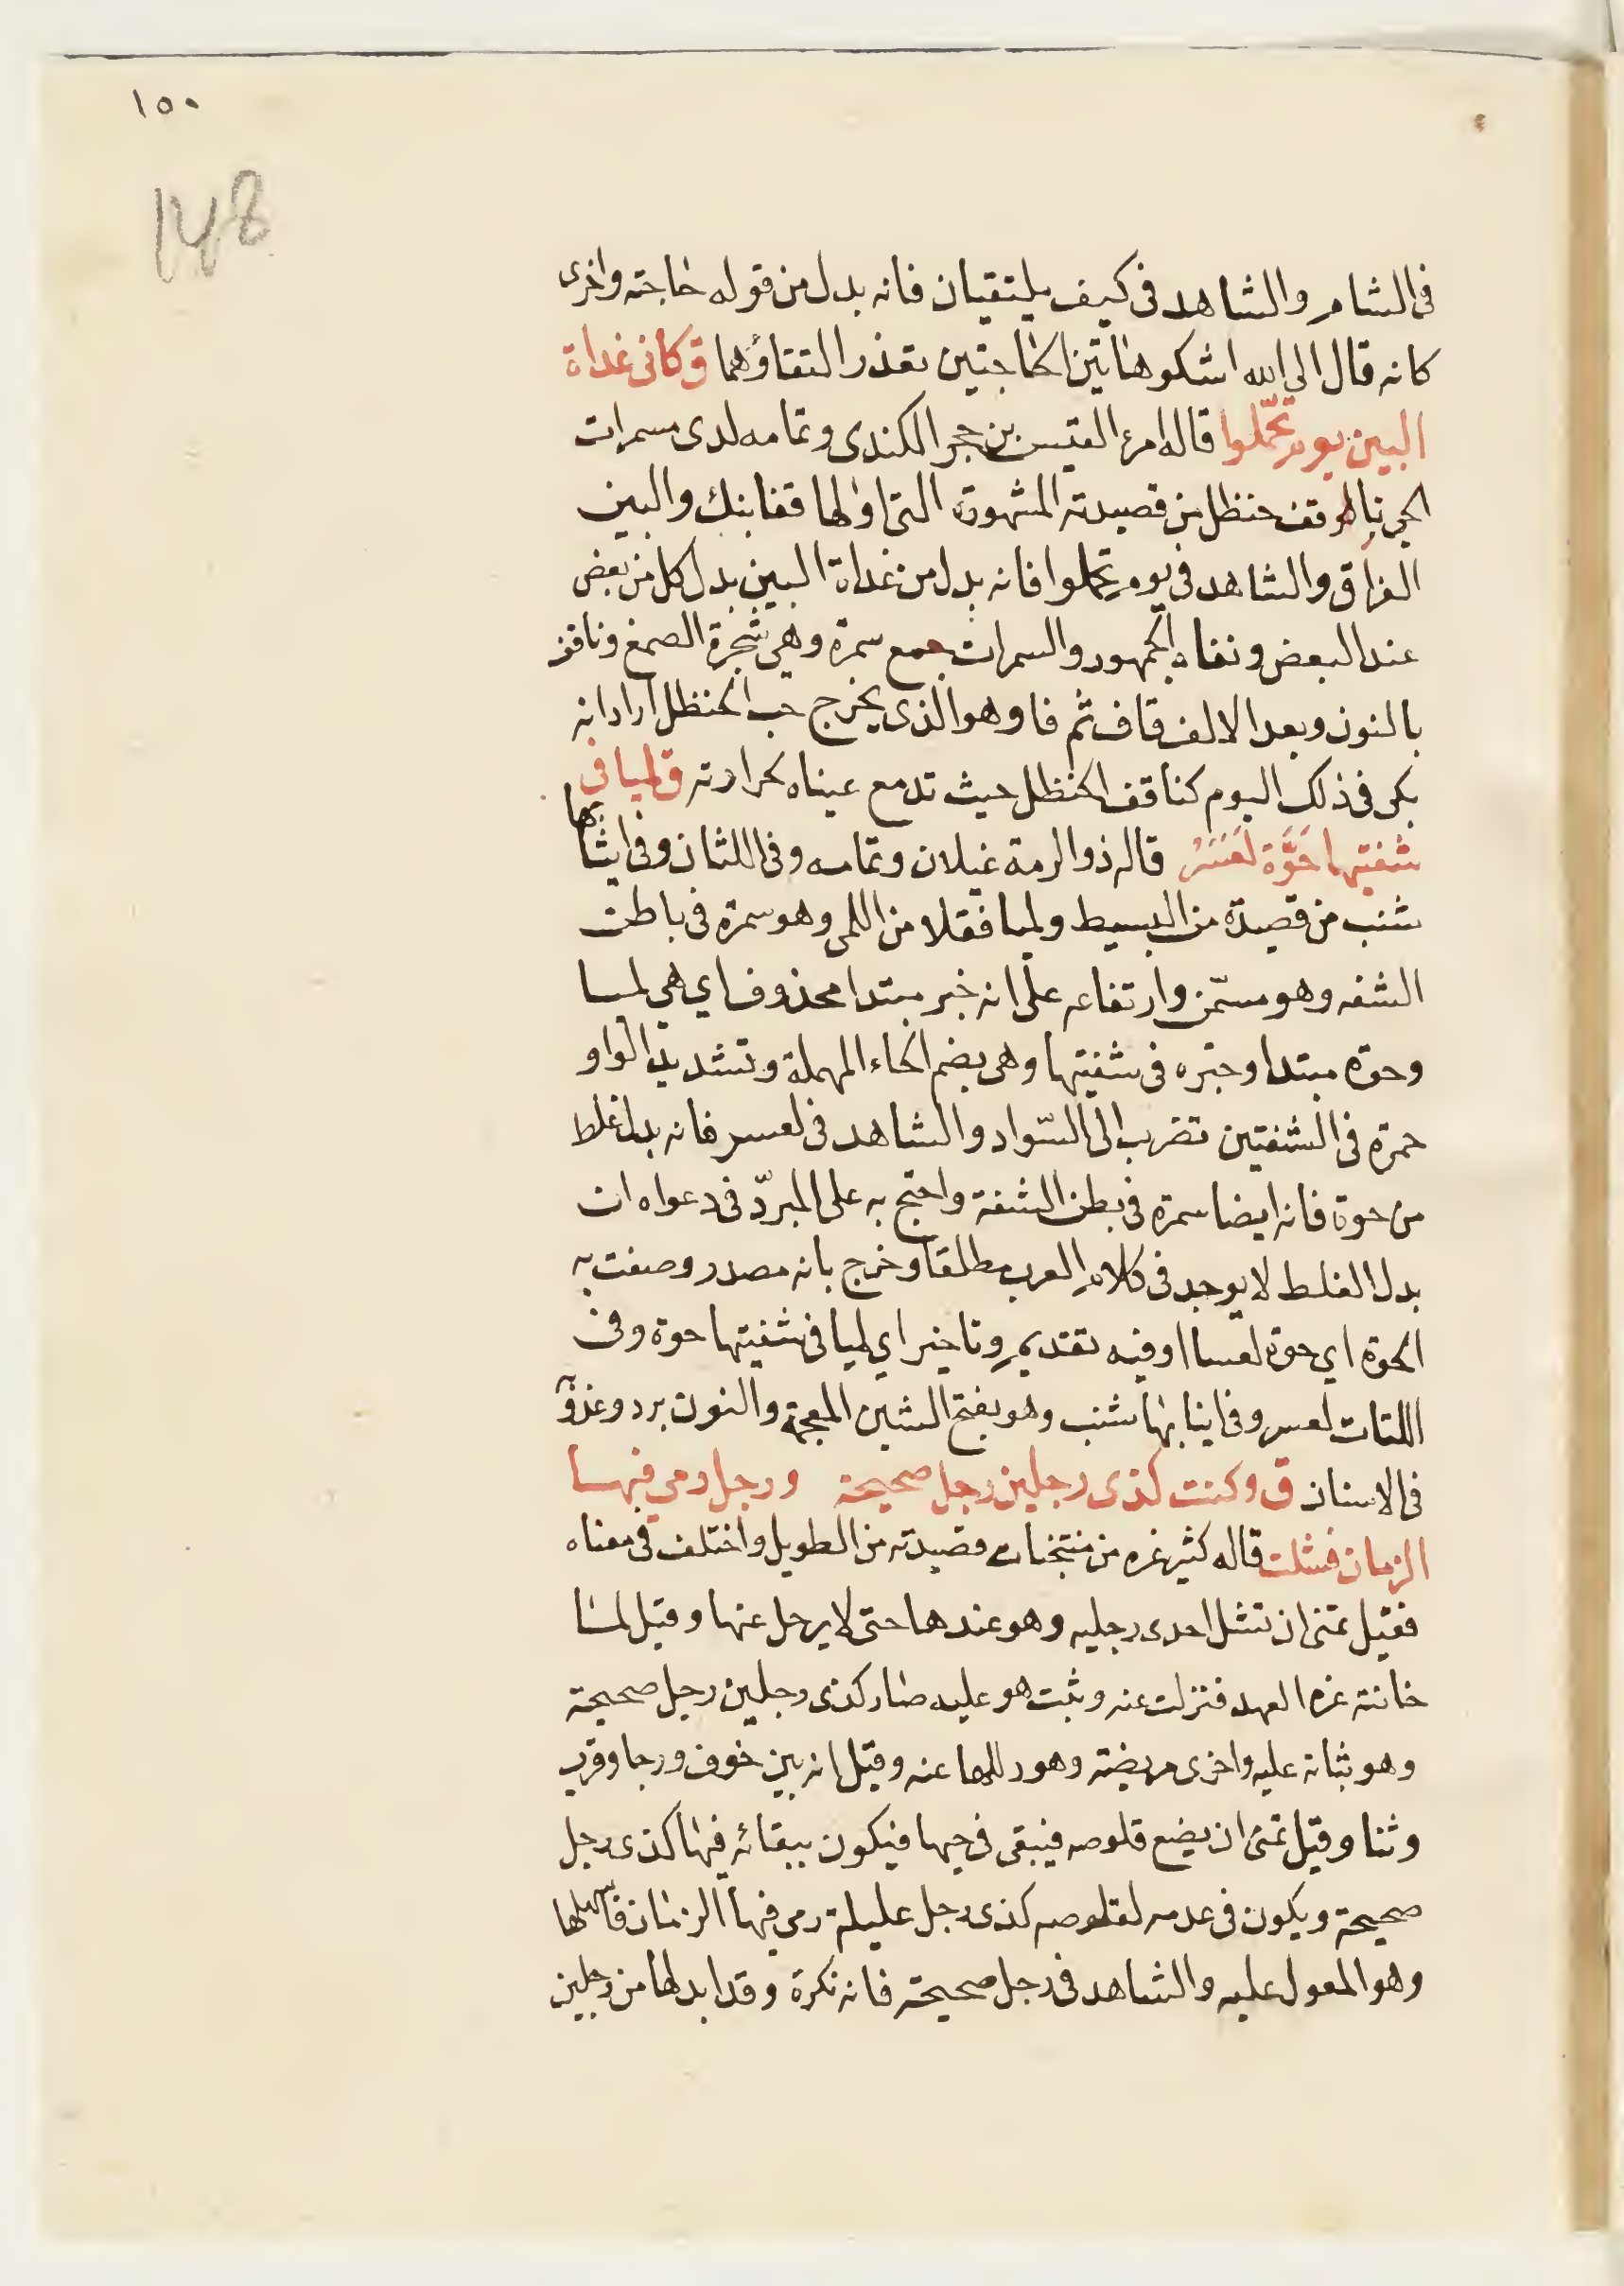 ١٥٠
148
فى الشام والشاهد فى كيف يلتقيان فانه بدل من قوله حاجة واخرى
كانه قال الى الله اشكو هاتين الحاجتين تعذر التقاؤهما ق كانى غداة
البين يوم تحملوا قاله امرء القيس بن حجر الكندى وتمامه لدى سمرات
الحي ناقف حنظل من قصيدته المشهورة التى اولها قفا نبك والبين
الفراق والشاهد فى يوم تحملوا فانه بدل من غداة البين بدل كل من بعض
عند البعض ونفاه الجمهور والسمرات جمع سمرة وهى شجرة الصمغ وناقف
بالنون وبعد الالف قاف ثم فا وهو الذى يخرج حب الحنظل اراد انه
بكى فى ذلك اليوم كناقف الحنظل حيث تدمع عيناه لحرارته ق لميا فى
شفتيها حوة لعس قاله ذو الرمة غيلان وتمامه وفى اللثات وفى انيابها
شنب من قصيدة من البسيط ولميا فعلا من اللمى وهو سمرة فى باطن
الشفه وهو مستحسن وارتفاعه على انه خبر مبتدا محذوف اي هى لميا
وحوة مبتدا وخبره فى شفتيها وهى بضم الحاء المهملة وتشديد الواو
حمرة فى الشفتين تضرب الى السواد والشاهد فى لعس فانه بدل غلط
من حوة فانه ايضا سمرة فى بطن الشفة واحتج به على المبرد فى دعواه ان
بدل الغلط لا يوجد فى كلام العرب مطلقا وخرج بانه مصدر وصفت به
الحوة اي حوة لعسا او فيه تقديم وتاخير اي لميا فى شفتيها حوة وفى
اللثات لعس وفى انيابها شنب وهو بفتح الشين المعجمة والنون برد وعذوبة
فى الاسنان ق وكنت كذى رجلين رجل صحيحة ورجل رمى فيها
الزمان فشلت قاله كثير عزه من منتخبات قصيدته من الطويل واختلف فى معناه
فقيل تمنى ان تشل احدى رجليه وهو عندها حتى لا يرحل عنها وقيل لما
خانته عزه العهد فنزلت عنه وثبت هو عليه صار كذى رجلين رجل صحيحة
وهو ثباته عليه واخرى مريضة وهو زللها عنه وقيل انه بين خوف ورجا وقرب
وثنا وقيل تمنى ان يضيع قلوصه فيبقى فى حيها فيكون ببقائه فيها كذى رجل
صحيحة ويكون فى عدمه لقلوصه كذى رجل عليلة رمى فيها الزمان فاشلها
وهو المعول عليه والشاهد فى رجل صحيحة فانه نكرة وقد ابدلها من رجلين